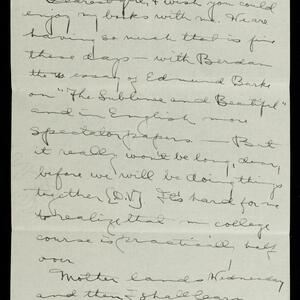 Dearest one, I wish you could
enjoy my books with me. We are
having so much that is fine
these days — with Berdan
the essay of Edmund Burke
on "The Sublime and Beautiful"
and in English more
Spectator papers — But
it really won't be long, dear,
before we will be doing things
together [D.V.] It's hard for me
to realize that my college
course is practically half
over
Mother lands Wednesday
and then I shall learn